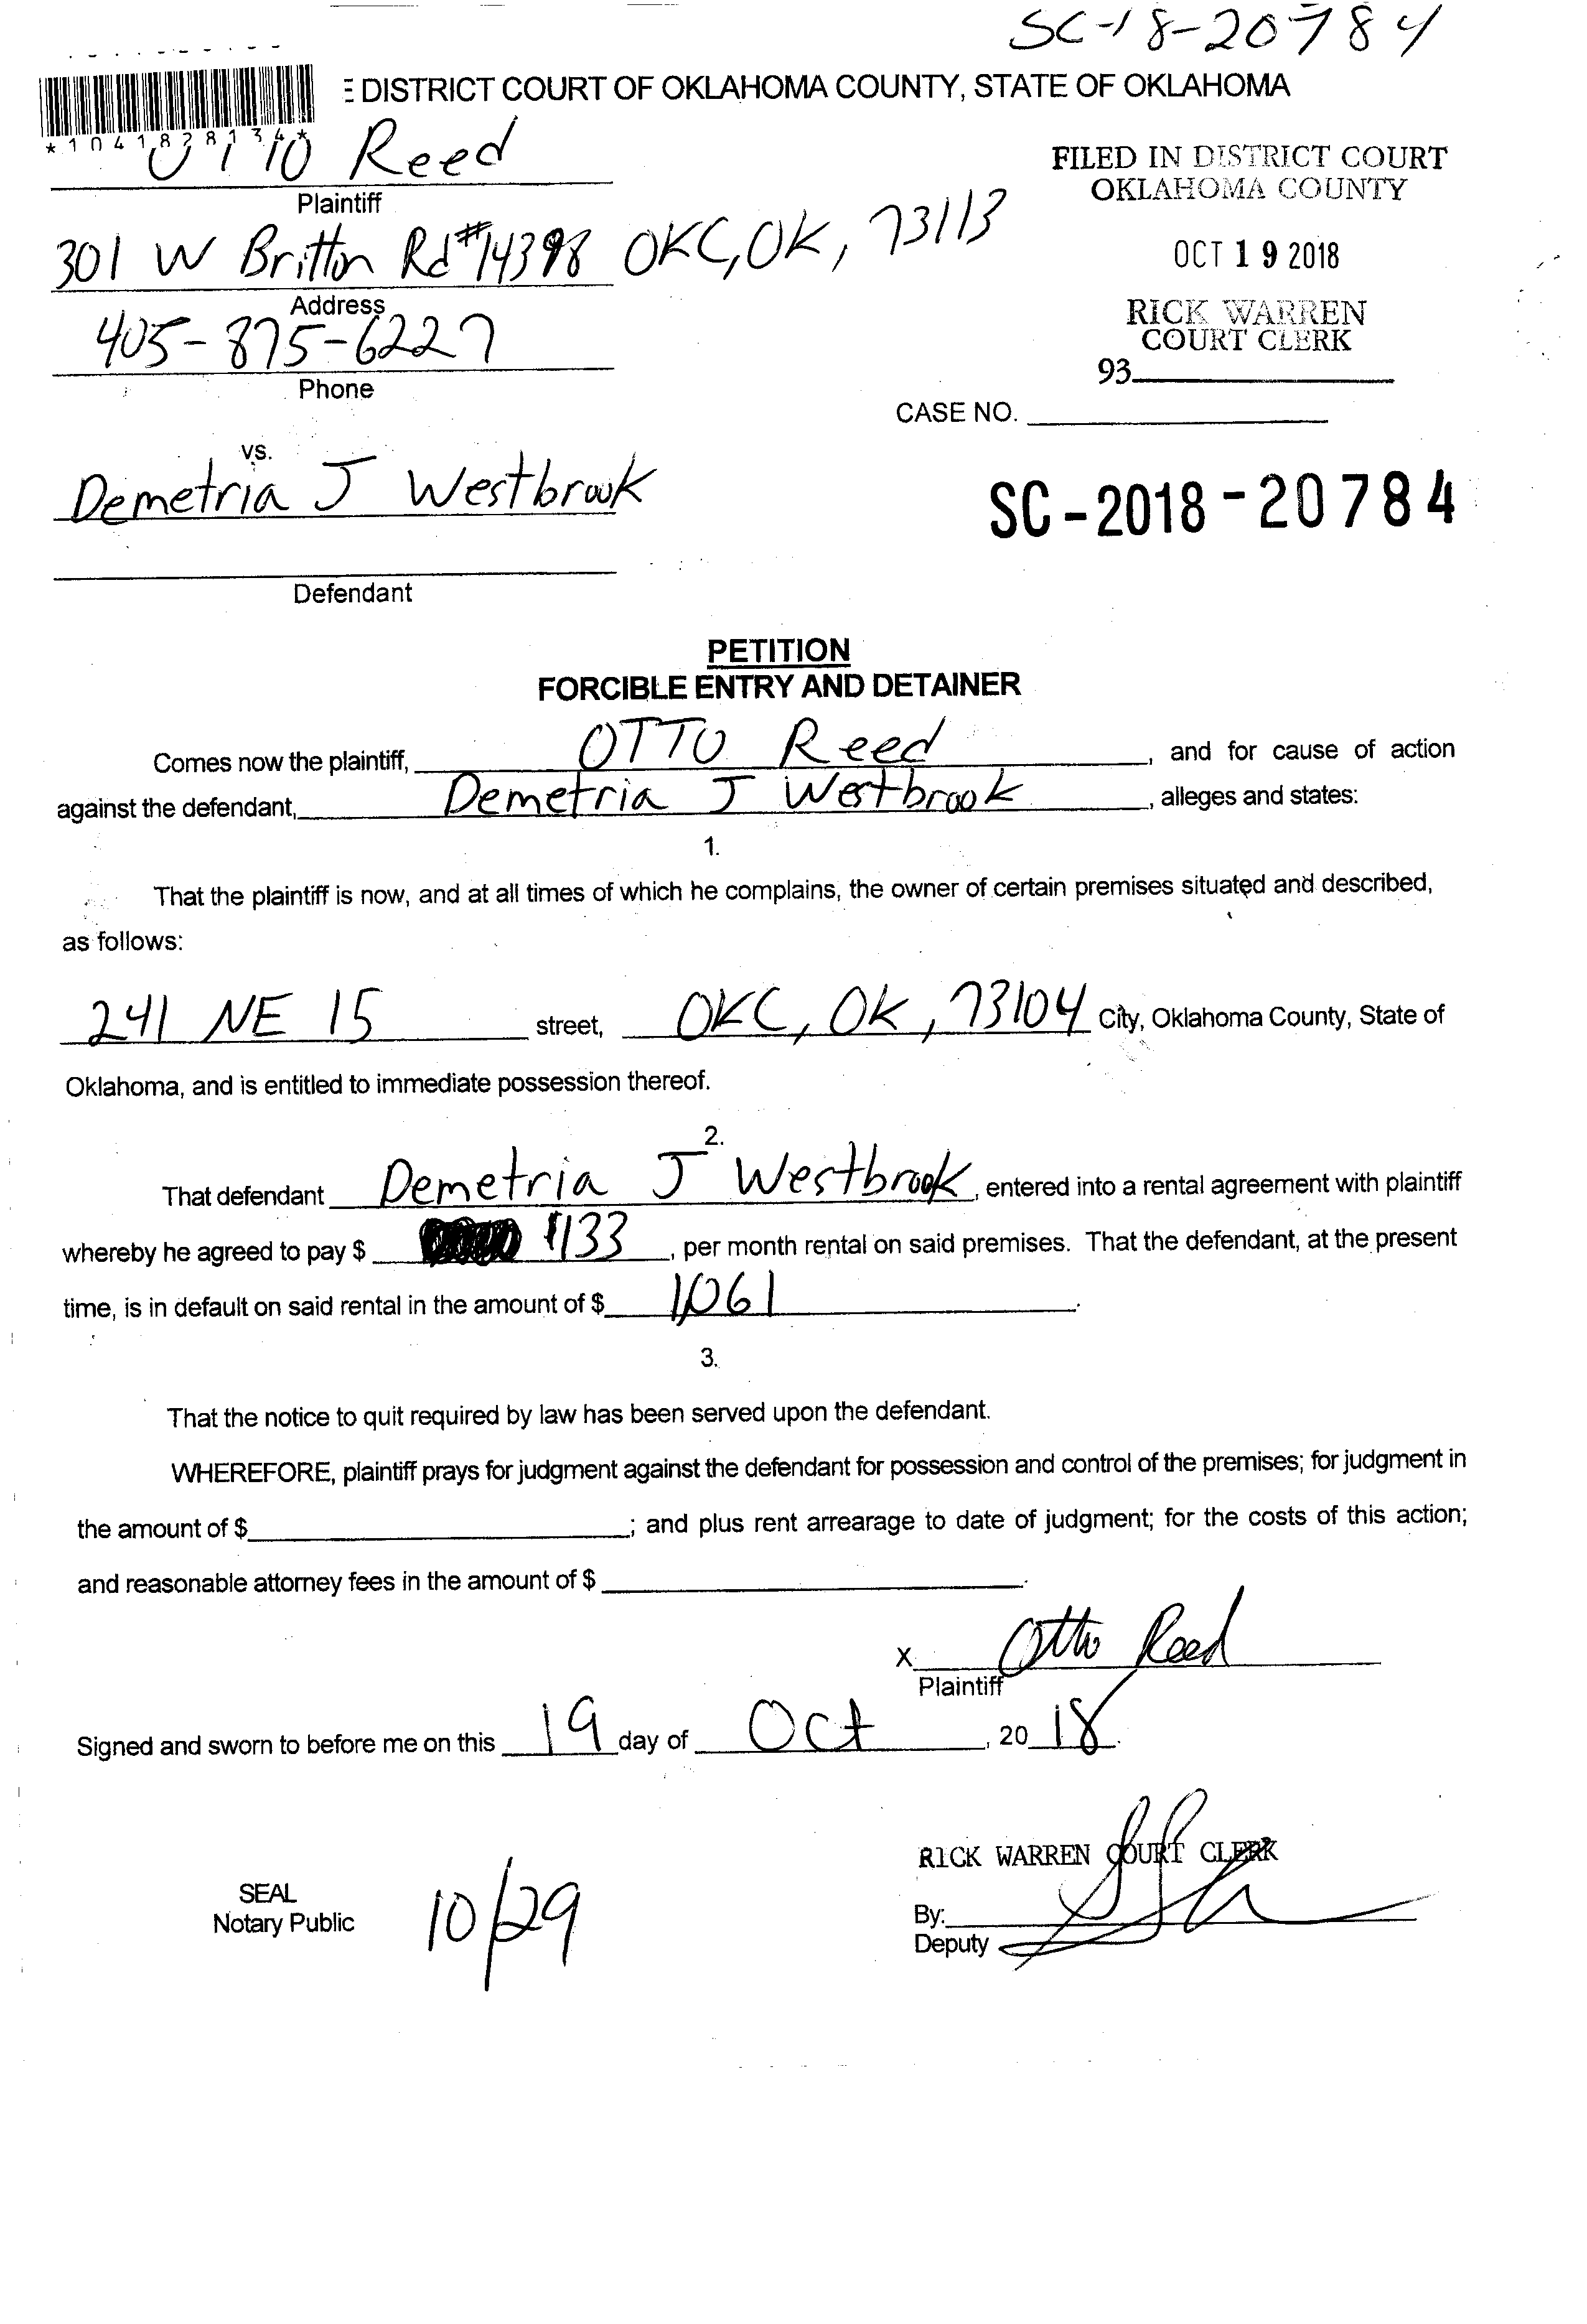 SC-18-20784
E DISTRICT COURT OF OKLAHOMA COUNTY, STATE OF OKLAHOMA
*1041828134*
OTTO Reed
Plaintiff
FILED IN DISTRICT COURT
OKLAHOMA COUNTY
301 W Britton Rd #14398 OKC, OK, 73113
OCT 19 2018
Address
405-875-6227
RICK WARREN
COURT CLERK
Phone
93
CASE NO.
vs.
Demetria J Westbrook
SC-2018-20784
Defendant
PETITION
FORCIBLE ENTRY AND DETAINER
Comes now the plaintiff, OTTO Reed, and for cause of action
against the defendant, Demetria J Westbrook, alleges and states:
1.
That the plaintiff is now, and at all times of which he complains, the owner of certain premises situated and described,
as follows:
241 NE 15 street, OKC, OK, 73104 City, Oklahoma County, State of
Oklahoma, and is entitled to immediate possession thereof.
2.
That defendant Demetria J Westbrook, entered into a rental agreement with plaintiff
whereby he agreed to pay $ $133, per month rental on said premises. That the defendant, at the present
time, is in default on said rental in the amount of $ 1,061.
3.
That the notice to quit required by law has been served upon the defendant.
WHEREFORE, plaintiff prays for judgment against the defendant for possession and control of the premises; for judgment in
the amount of $; and plus rent arrearage to date of judgment; for the costs of this action;
and reasonable attorney fees in the amount of $.
X Otto Reed
Plaintiff
Signed and sworn to before me on this 19 day of Oct, 20 18.
RICK WARREN COURT CLERK
SEAL
Notary Public
10/29
By:
Deputy